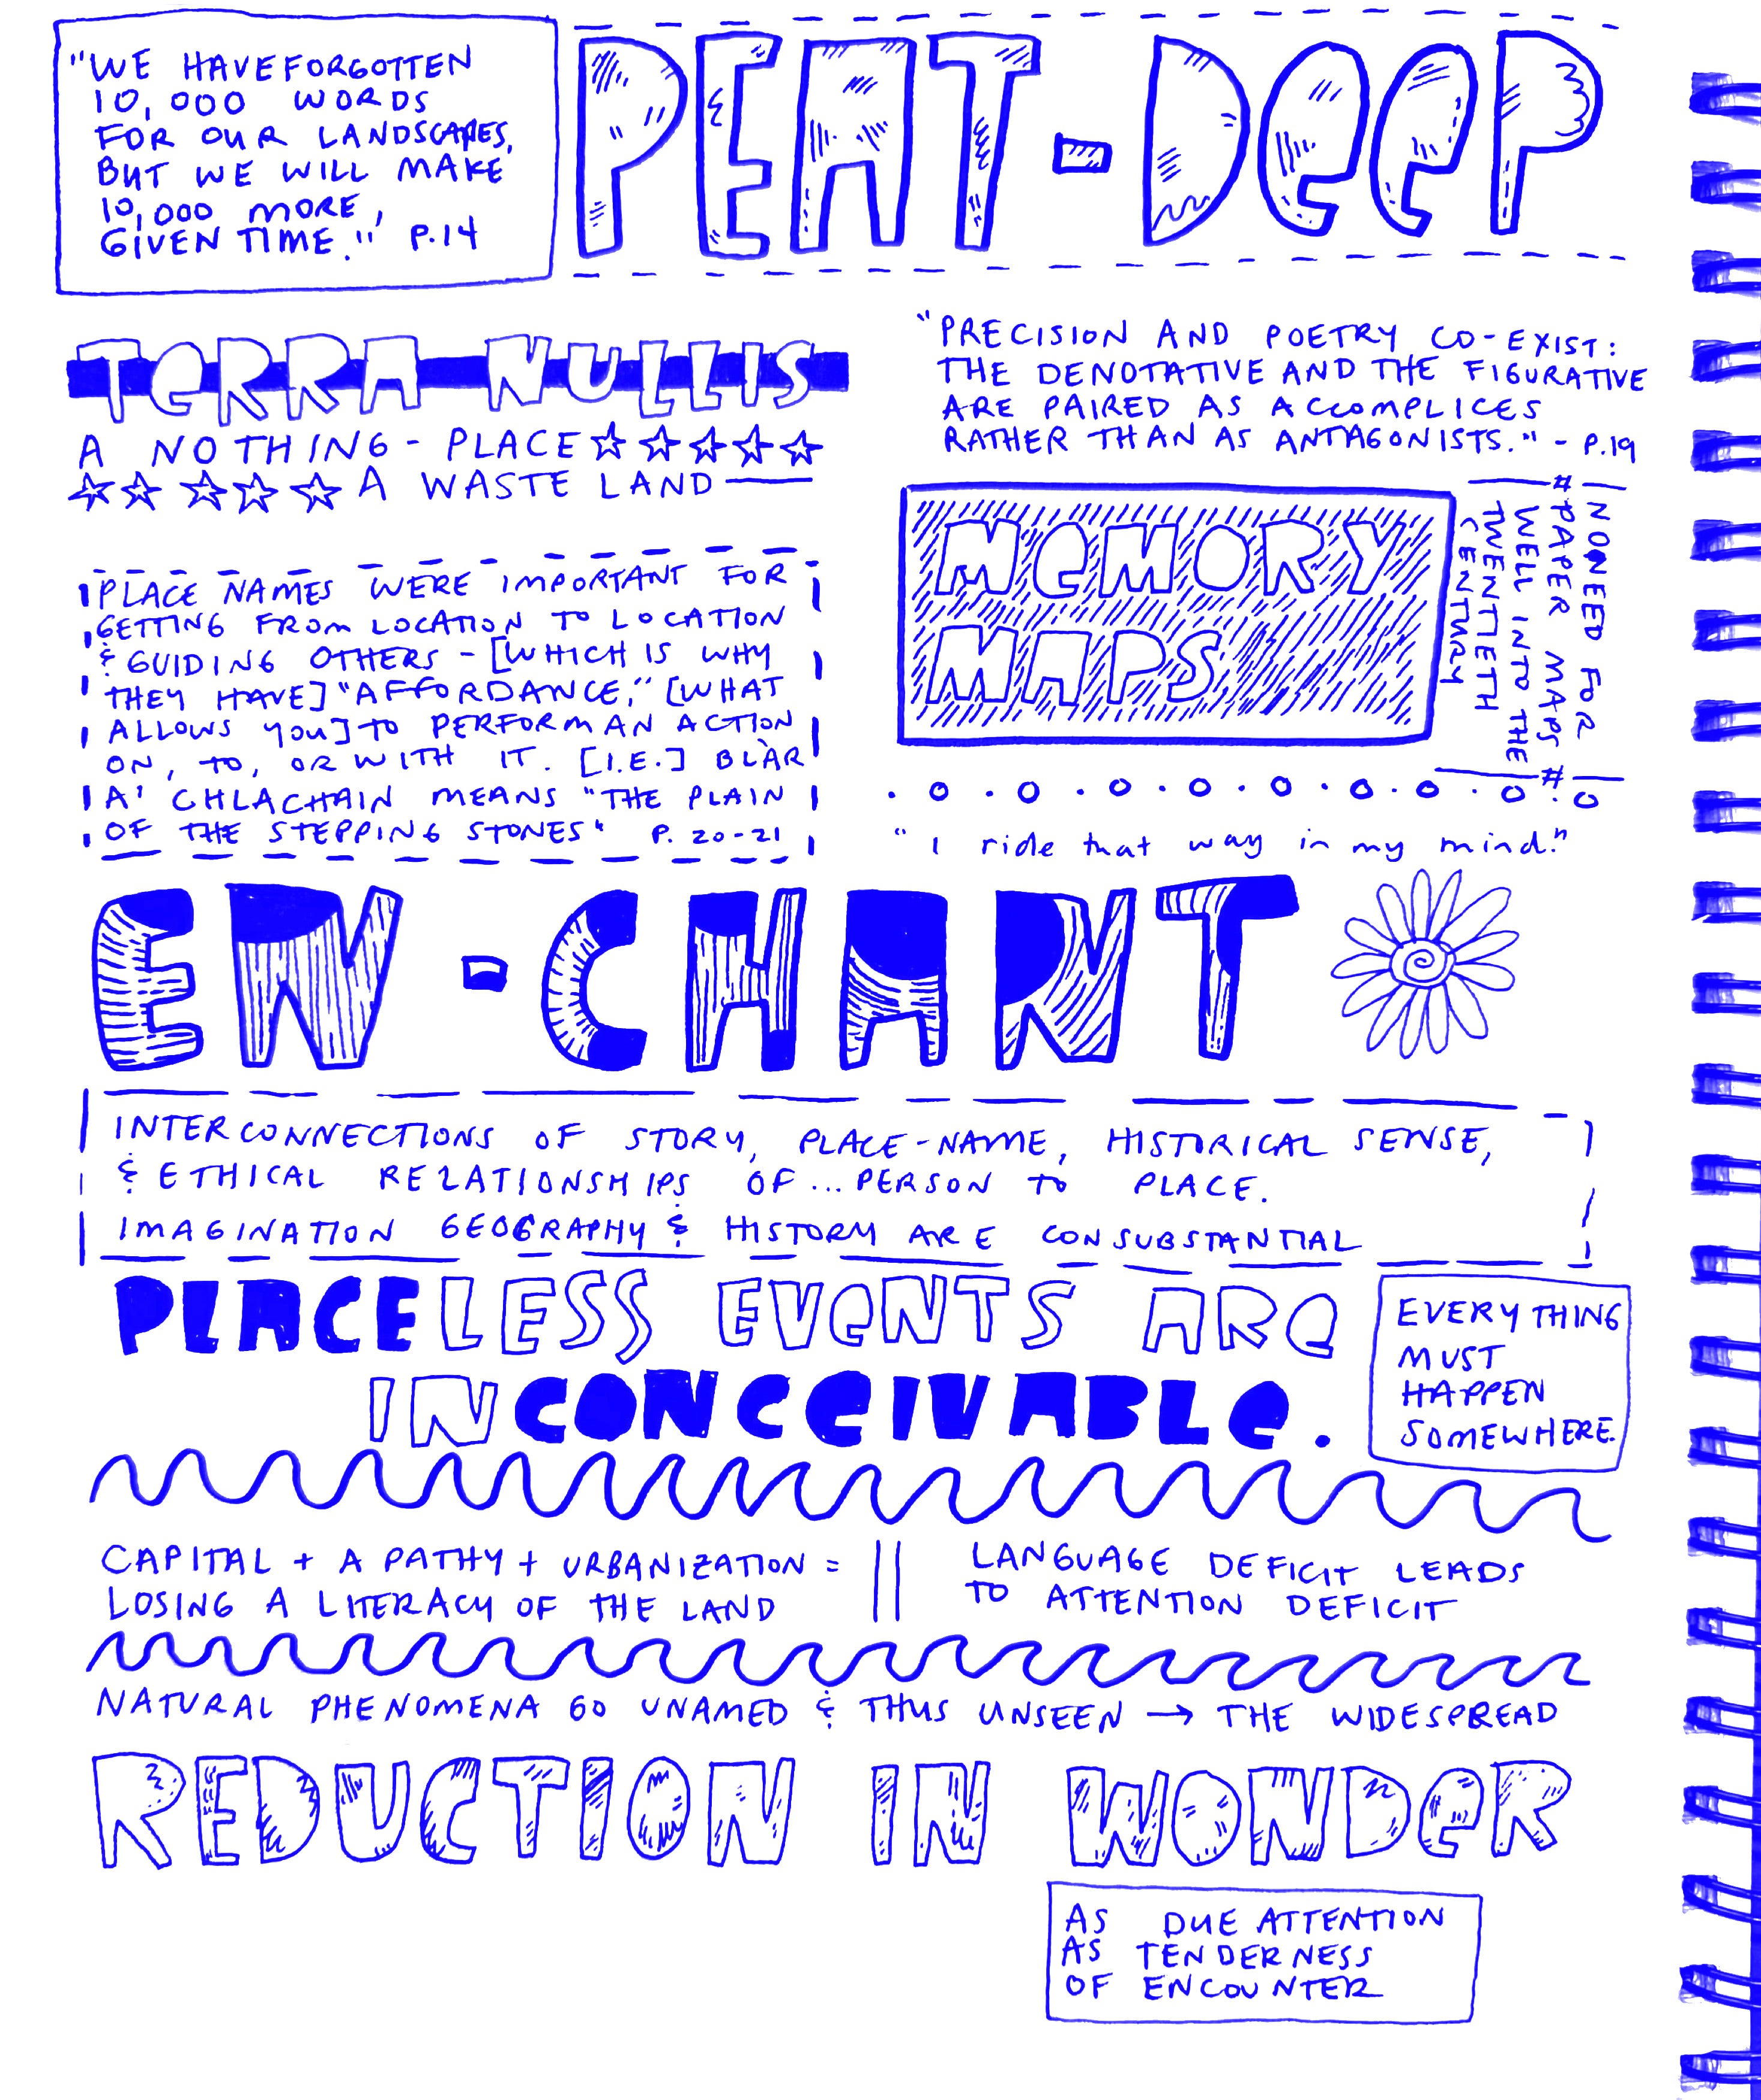 "WE HAVE FORGOTTEN
10,000 WORDS
FOR OUR LANDSCAPES,
BUT WE WILL MAKE
10,000 MORE,
GIVEN TIME." P.14
PEAT-DeeP
TeRRA NULLIS
A NOTHING-PLACE
A WASTE LAND
"PRECISION AND POETRY CO-EXIST:
THE DENOTATIVE AND THE FIGURATIVE
ARE PAIRED AS ACCOMPLICES
RATHER THAN AS ANTAGONISTS." - P.19
PLACE NAMES WERE IMPORTANT FOR
GETTING FROM LOCATION TO LOCATION
& GUIDING OTHERS - [WHICH IS WHY
THEY HAVE] "AFFORDANCE," [WHAT
ALLOWS YOU] TO PERFORM AN ACTION
ON, TO, OR WITH IT. [I.E.] BLÀR
A' CHLACHAIN MEANS "THE PLAIN
OF THE STEPPING STONES" P. 20-21
MeMORY
MAPS
NO NEED FOR
#PAPER MAPS#
WELL INTO THE
TWENTIETH
CENTURY
"I ride that way in my mind."
EN-CHANT
INTERCONNECTIONS OF STORY, PLACE-NAME, HISTORICAL SENSE,
& ETHICAL RELATIONSHIPS OF... PERSON TO PLACE.
IMAGINATION GEOGRAPHY & HISTORY ARE CONSUBSTANTIAL
PLACELESS EVeNTS ARe
INCONCeIVABLe.
EVERYTHING
MUST
HAPPEN
SOMEWHERE.
CAPITAL + APATHY + URBANIZATION =
LOSING A LITERACY OF THE LAND
LANGUAGE DEFICIT LEADS
TO ATTENTION DEFICIT
NATURAL PHENOMENA GO UNAMED & THUS UNSEEN → THE WIDESPREAD
REDUCTION IN WONDeR
AS DUE ATTENTION
AS TENDERNESS
OF ENCOUNTER